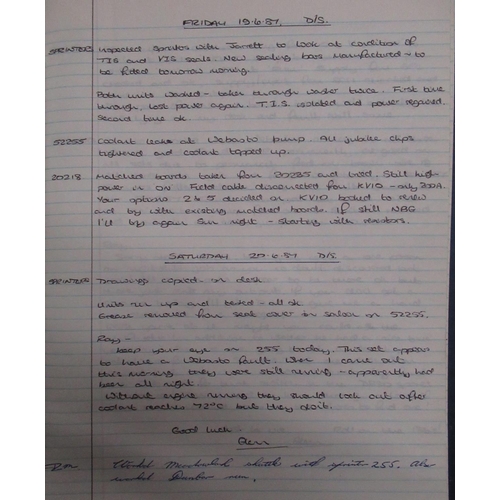 FRIDAY 19.6.87. D/S.
SPRINTERS Inspected sprinter with Jarrett to look at condition of
TIS and VIS seals. New sealing bars manufactured - to
be fitted tomorrow morning.
Both units washed - taken through washer twice. First time
through, lost power again. T.I.S. isolated and power regained.
Second time ok.
52255 Coolant leaks at Webasto pump. All jubilee clips
tightened and coolant topped up.
20218 Matched boards taken from 20225 and tried. Still high
power in 'ON'. Field cable disconnected from KV10 - only 200A.
Your options 2 & 5 decided on. KV10 booked to renew
and try with existing matched boards. If still NBG
I'll try again Sun night - starting with
SATURDAY 20.6.87 D/S.
SPRINTERS Drawings copied - on desk
Units run up and tested - all ok
Grease removed from seat cover in saloon on 52255.
Ray -
Keep your eye on 255 today. This set appears
to have a Webasto fault. When I came out
this morning they were still running - apparently had
been all night.
Without engine running they should lock out after
coolant reaches 72°C but they don't.
Good luck -
Ron Worked shuttle with sprinter 255. Also
worked run.